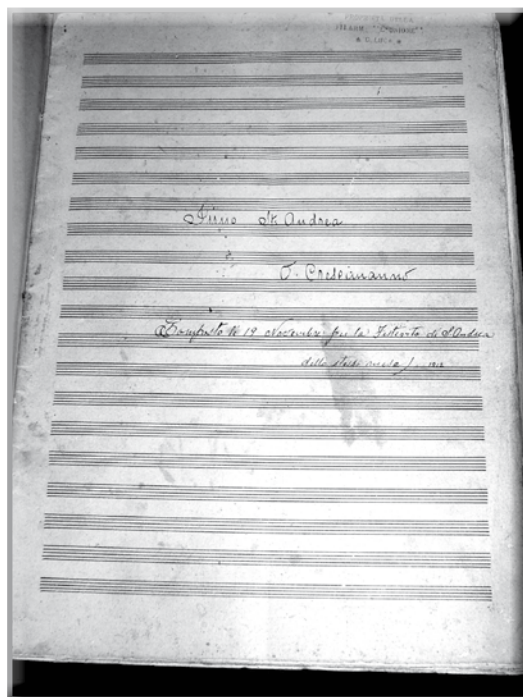 Inno St Andrea
di
O. Crescimanno
Composto li 19 Novembre per la Festività di S Andrea
dello stesso mese